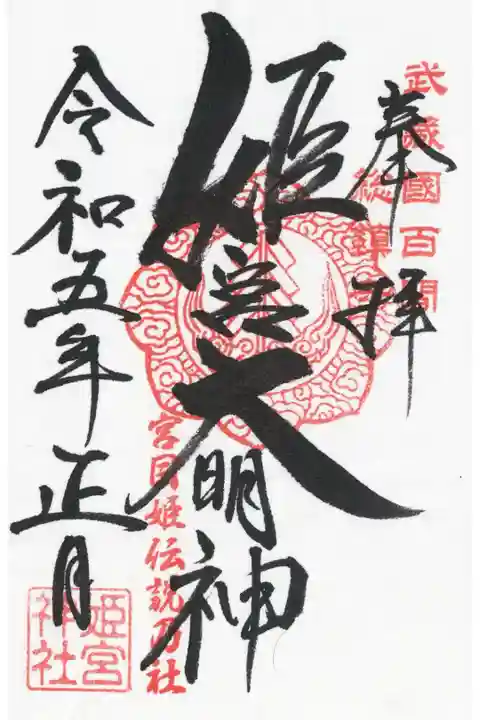 武蔵國百間
総鎮守
奉拝
姫宮大明神
宮目姫伝説乃社
令和五年正月
姫宮神社